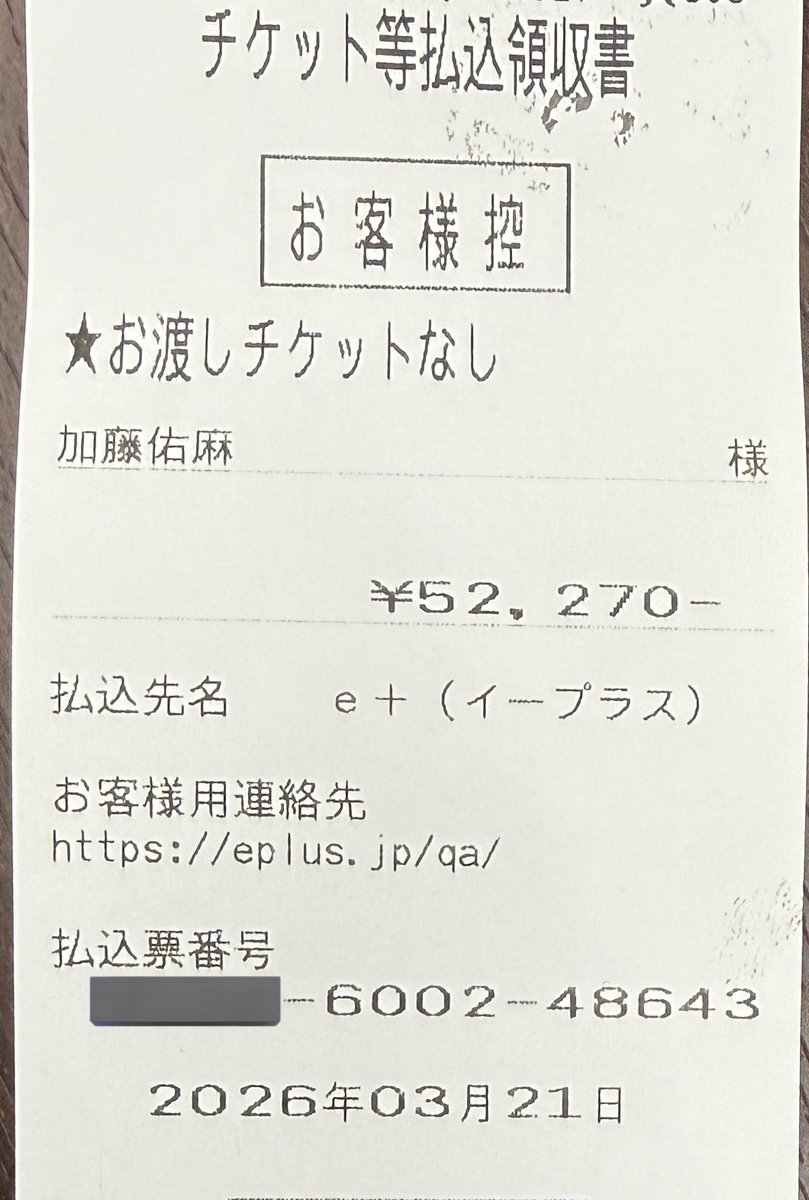 チケット等払込領収書
お客様控
★お渡しチケットなし
加藤佑麻 様
¥52,270-
払込先名 e+(イープラス)
お客様用連絡先
https://eplus.jp/qa/
払込票番号
-6002-48643
2026年03月21日